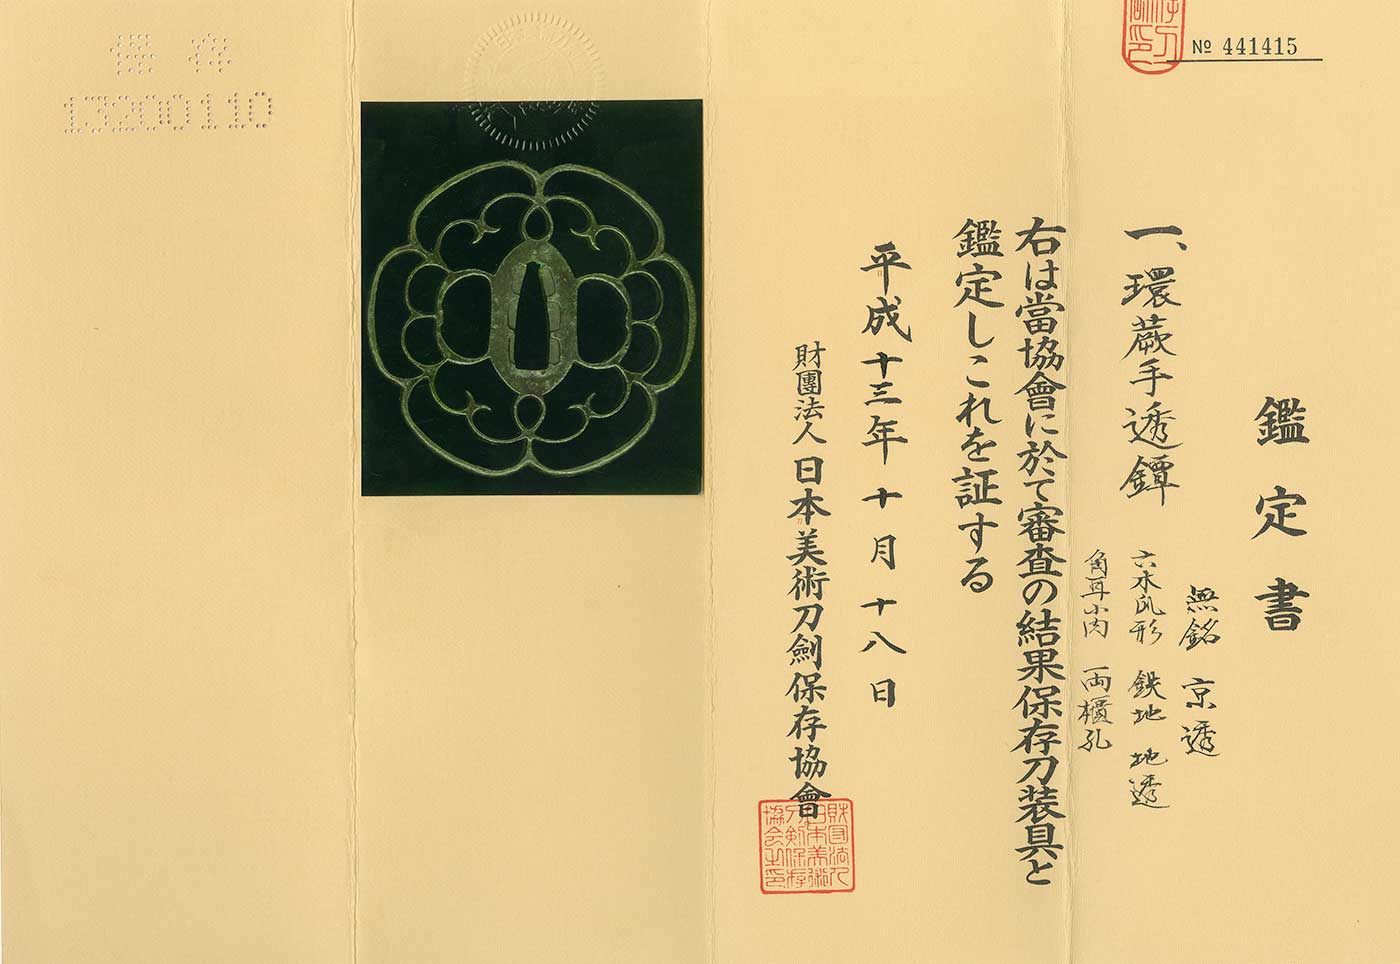 № 441415
鑑定書
一、環蕨手透鐔
無銘 京透
六木瓜形 鉄地 地透
角耳小肉 両櫃孔
右は當協會に於て審査の結果保存刀装具と
鑑定しこれを証する
平成十三年十月十八日
財團法人日本美術刀劍保存協會
財団法人日本美術刀剣保存協会之印
保存
13200110